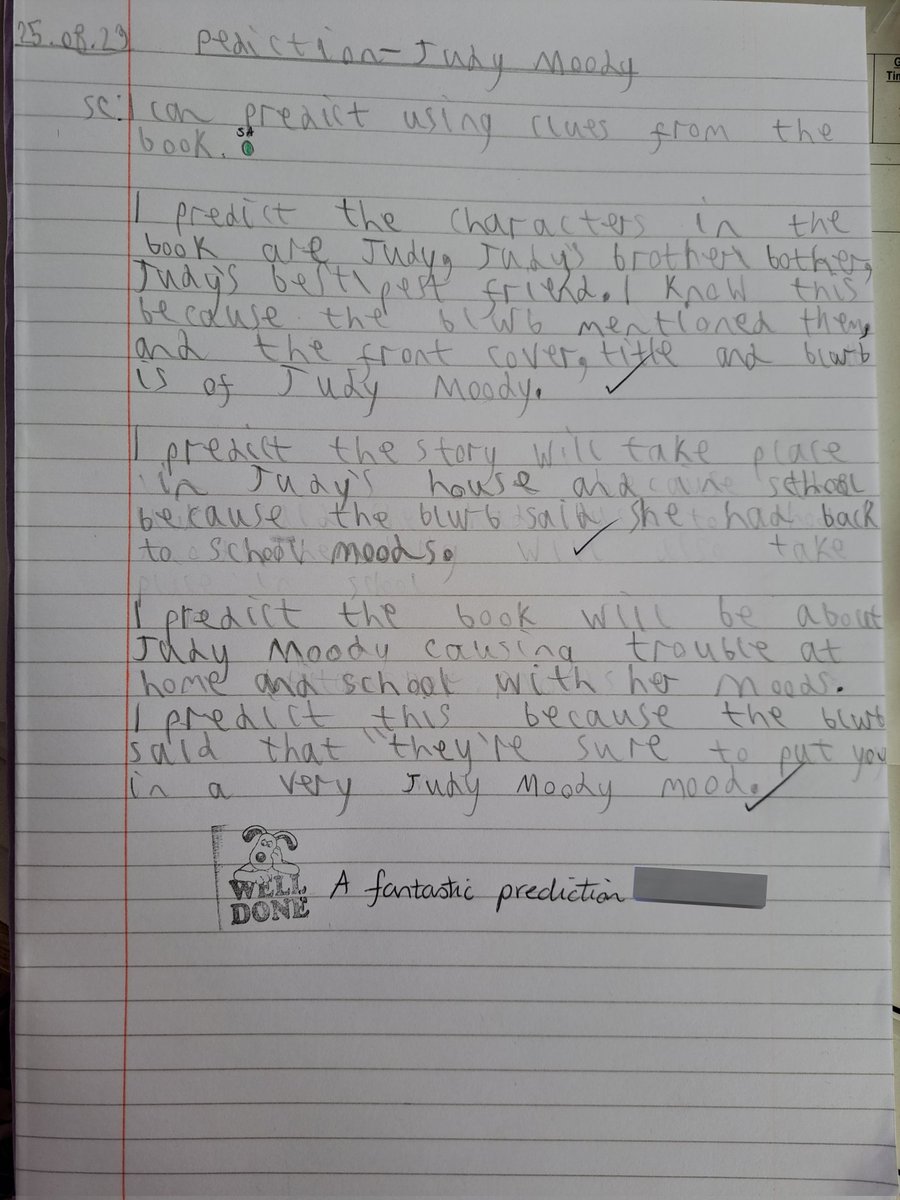 25.08.23 Pediction-Judy Moody
SC: I can predict using clues from the
book. SA
I predict the characters in the
book are Judy, Judy's brother bother,
Judy's best/pest friend. I know this
because the blurb mentioned them,
and the front cover, title and blurb
is of Judy Moody.
I predict the story will take place
in Judy's house and school
because the blurb said she had back
to school moods.
I predict the book will be about
Judy Moody causing trouble at
home and school with her moods.
I predict this because the blurb
said that "they're sure to put you
in a very Judy Moody mood.
WELL
DONE
A fantastic prediction